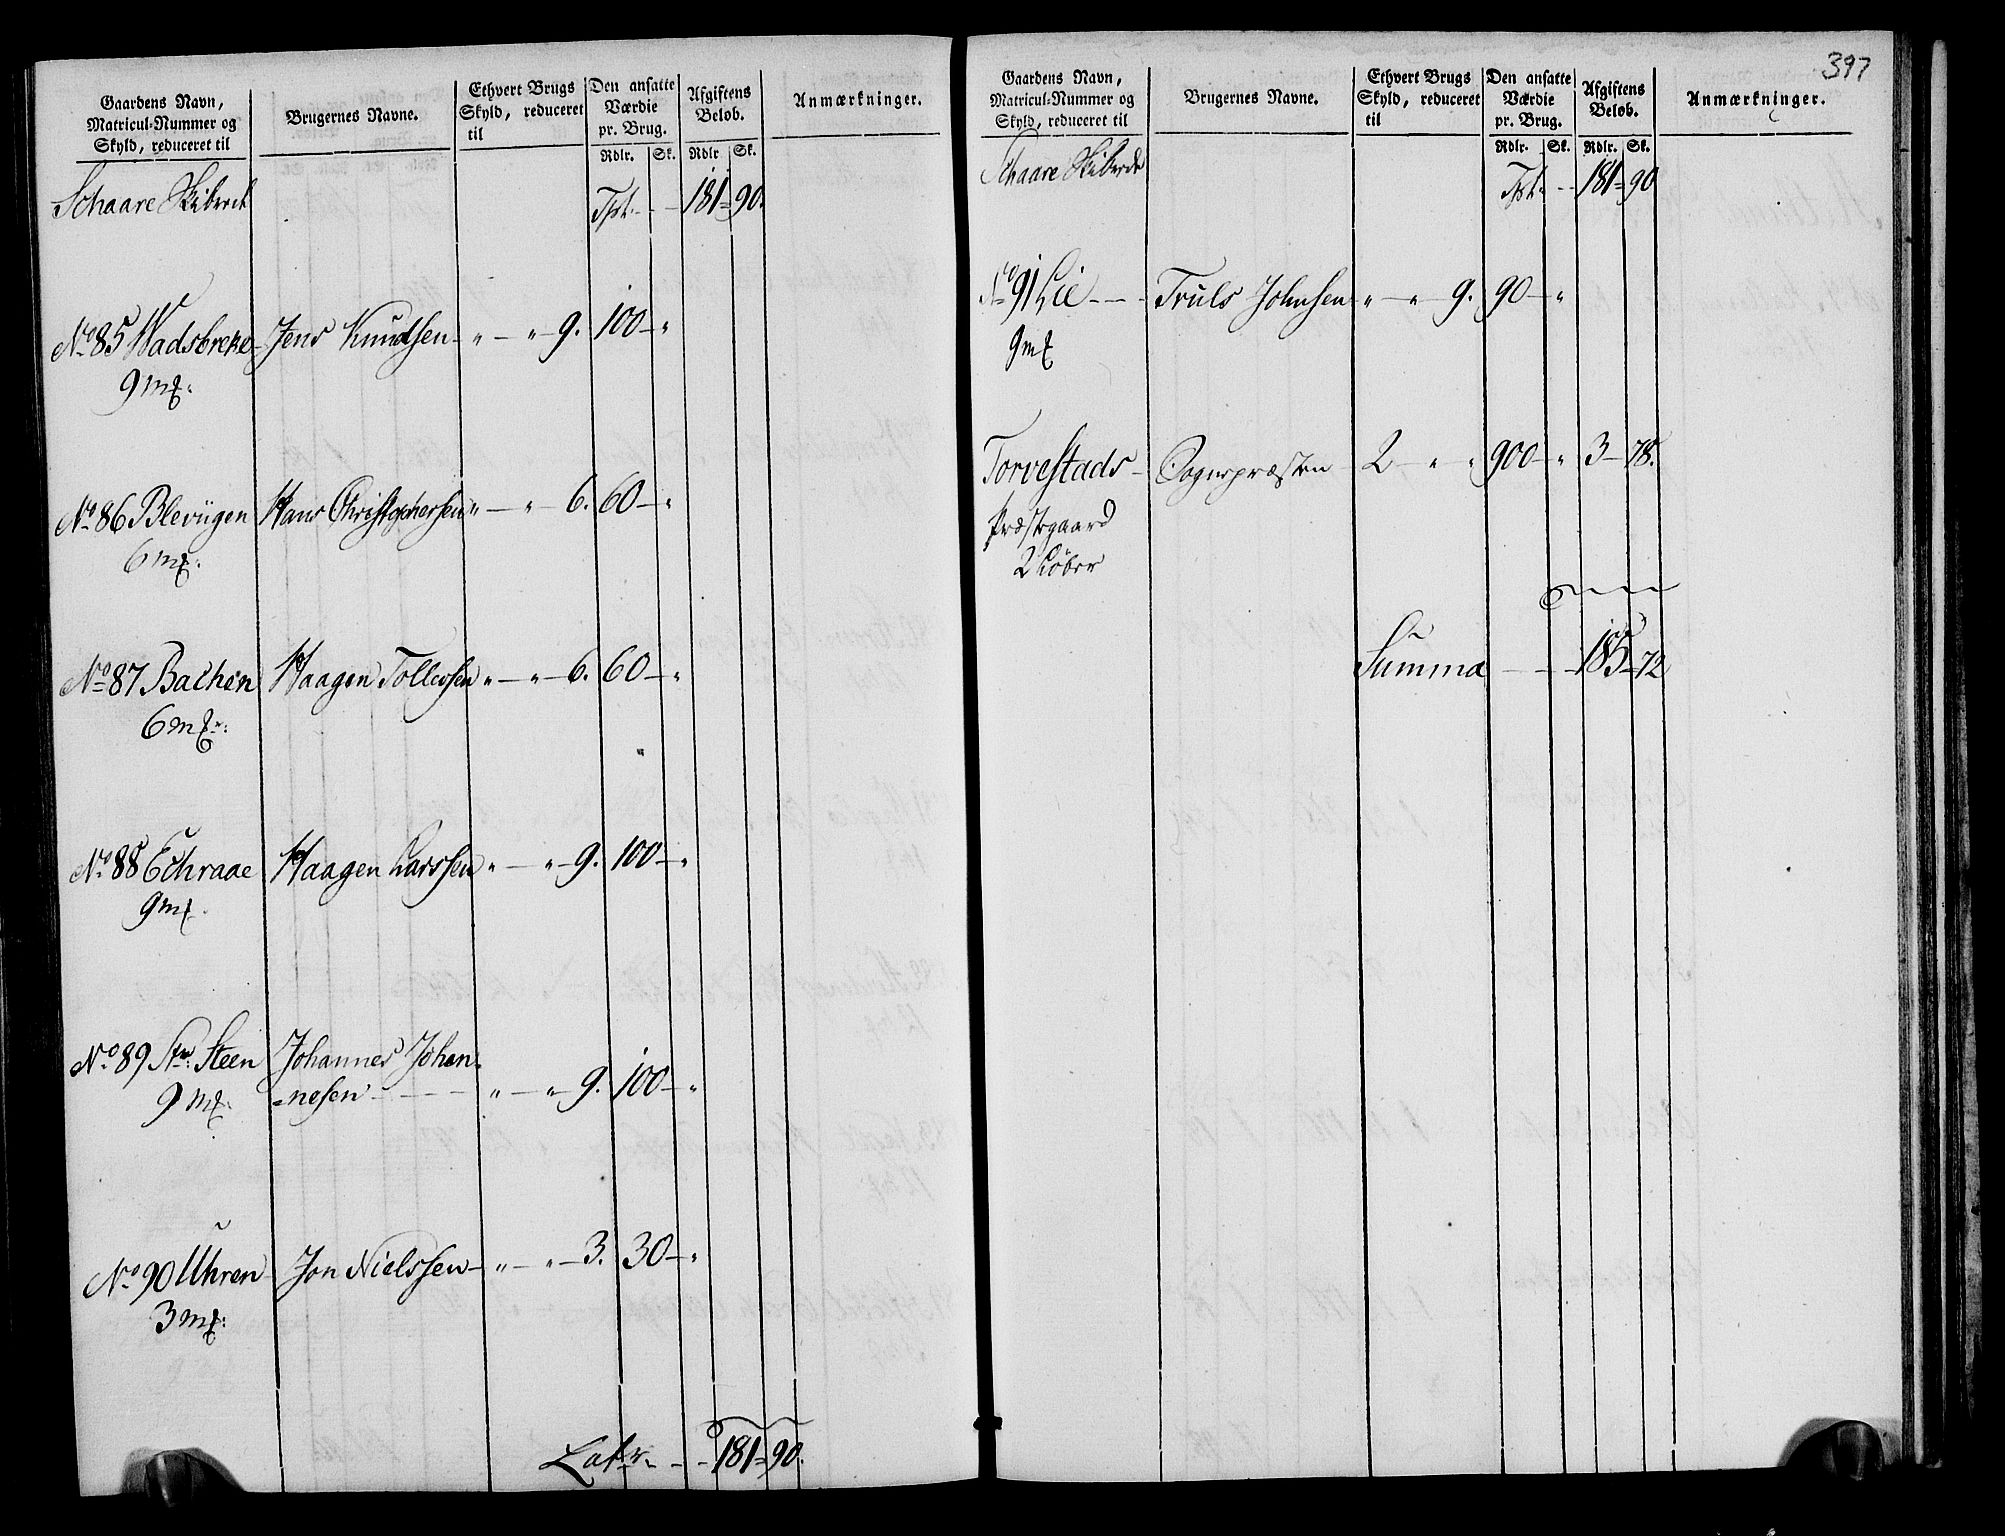 Gaardens Navn, Matricul-Nummer og Skyld, reduceret til
Brugernes Navne.
Ethvert Brugs Skyld, reduceret til
Den ansatte Værdie pr. Brug.
Afgiftens Beløb.
Anmærkninger.
Rdlr. Sk. Rdlr Sk.
Schaare Skibred Tpt. - - 181 - 90.
No. 85 Wadsbreke - Jens Knudsen - " - " - 9. 100 - "
9 mk.
No. 86 Blevügen Hans Christophersen " - " - 6. 60 - "
6 mk.
No. 87 Bachen Haagen Tollevsen " - " - 6. 60 - "
6 mk:
No. 88 Echraae Haagen Larssen " - " - 9. 100 - "
9 mk.
No. 89 Str: Steen Johannes Johan-
9 mk. -nesen - - - " - " - 9. 100 - "
No. 90 Uhren Jon Nielssen - " - " - 3. 30 - "
3 mk:
Latr. - - 181 - 90.
397
Gaardens Navn, Matricul-Nummer og Skyld, reduceret til
Brugernes Navne.
Ethvert Brugs Skyld, reduceret til
Den ansatte Værdie pr. Brug.
Afgiftens Beløb.
Anmærkninger.
Rdlr. Sk. Rdlr. Sk.
Schaare Skibrede Tpt. - - 181 - 90
No. 91 Lie - - - Truls Johnsen - " - " - 9. 90 - "
9 mk
Torvestads - Sognepræsten - 2 - " " 900 - " 3 - 78.
Præstegaard
2 Løber
Summa - - - 185 - 72